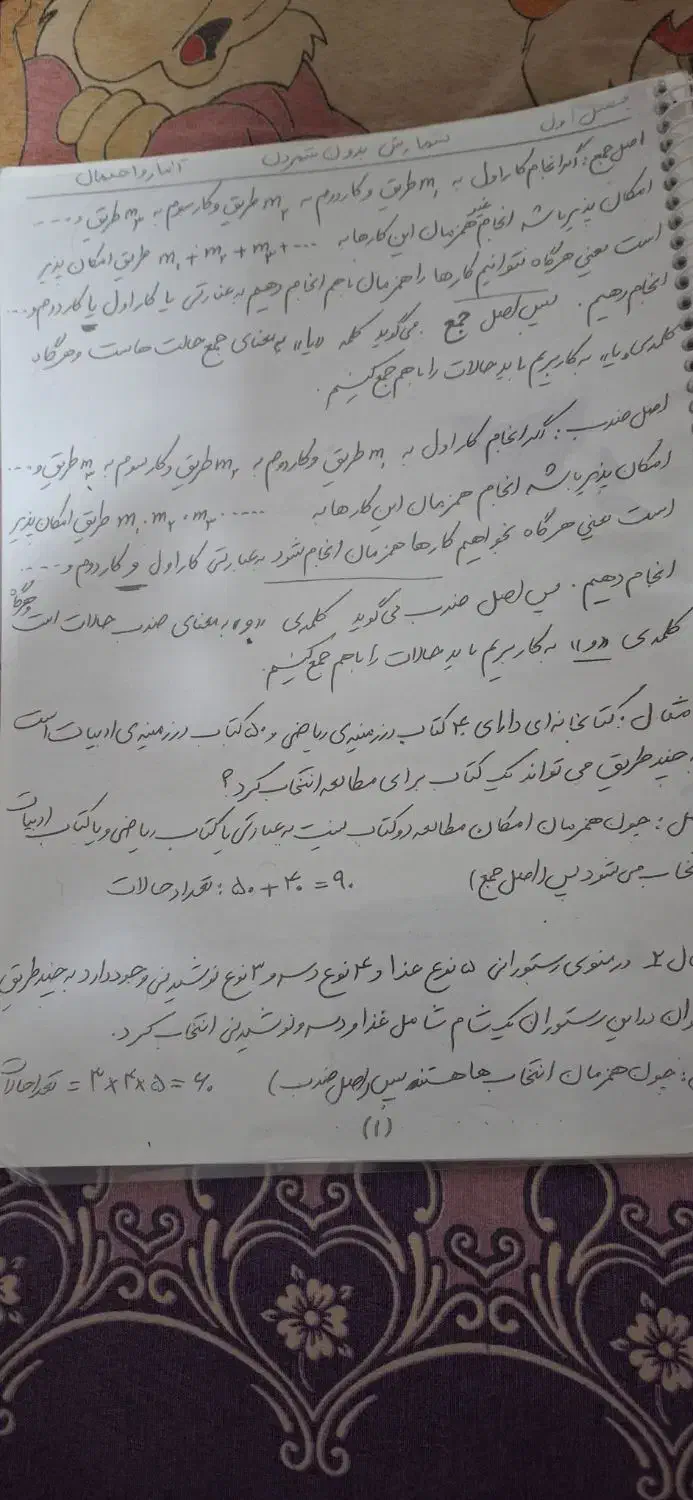 فصل اول شمارش بدون شمردن آمار و احتمال
اصل جمع: اگر انجام کار اول به m۱ طریق و کار دوم به m۲ طریق و کار سوم به m۳ طریق و ....
امکان پذیر باشد انجام غیر همزمان این کارها به m۱ + m۲ + m۳ + ... طریق امکان پذیر
است یعنی هرگاه نتوانیم کارها را همزمان باهم انجام دهیم به عبارتی یا کار اول یا کار دوم و ...
انجام دهیم. پس اصل جمع می‌گوید کلمه «یا» به معنای جمع حالت هاست و هرگاه
کلمه‌ی «یا» به کار بریم باید حالات را باهم جمع کنیم.
اصل ضرب: اگر انجام کار اول به m۱ طریق و کار دوم به m۲ طریق و کار سوم به m۳ طریق و ...
امکان پذیر باشد انجام همزمان این کارها به m۱ . m۲ . m۳ ..... طریق امکان پذیر
است یعنی هرگاه بخواهیم کارها همزمان انجام شود به عبارتی کار اول و کار دوم و ....
انجام دهیم. پس اصل ضرب می‌گوید کلمه‌ی «و» به معنای ضرب حالات است و هرگاه
کلمه‌ی «و» به کار بریم باید حالات را باهم جمع کنیم.
مثال: کتابخانه ای دارای ۴۰ کتاب در زمینه‌ی ریاضی و ۵۰ کتاب در زمینه‌ی ادبیات است
چند طریق می تواند یک کتاب برای مطالعه انتخاب کرد؟
حل: چون همزمان امکان مطالعه دو کتاب نیست به عبارتی یا کتاب ریاضی و یا کتاب ادبیات
می شود پس (اصل جمع) ۵۰ + ۴۰ = ۹۰ : تعداد حالات
۲ در منوی رستورانی ۵ نوع غذا و ۴ نوع دسر و ۳ نوع نوشیدنی وجود دارد به چند طریق
در این رستوران یک شام شامل غذا و دسر و نوشیدنی انتخاب کرد.
: چون همزمان انتخاب ها هستند پس (اصل ضرب) ۳ × ۴ × ۵ = ۶۰ = تعداد حالات
(۱)